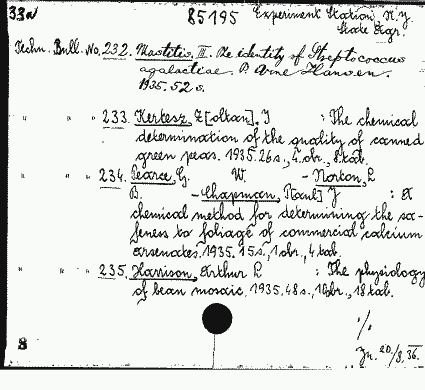 33a 85195 Experiment Station, N.Y.
State Agr.
Techn. Bull. No. 232. Mastitis. III. The identity of Streptococcus
agalactiae. P. Arne Hansen.
1935. 52 s.
" " " 233. Kertesz, Z[oltan]. I : The chemical
determination of the quality of canned
green peas. 1935. 26 s., 4 obr., 8 tab.
" " " 234. Pearce, G. W. - Norton, L
B. - Chapman, P[aul] J : A
chemical method for determining the sa-
feness to foliage of commercial calcium
arsenates. 1935. 15 s., 1 obr., 4 tab.
" " " 235. Harrison, Arthur L : The physiology
of bean mosaic. 1935. 48 s., 10 obr., 18 tab.
./.
8 20/8. 36.